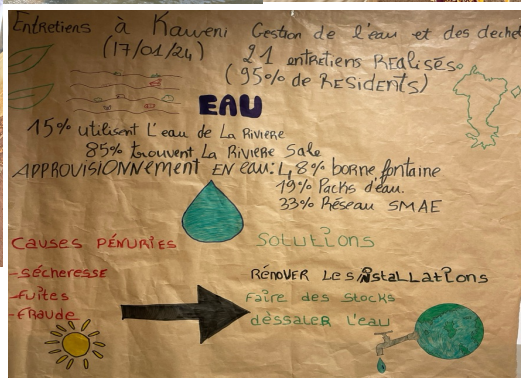 Entretiens à Kaweni Gestion de l'eau et des dechet
(17/01/24) 21 entretiens REALISÉS
(95% de RESIDENTS)
EAU
15% utilisent L'eau de La RIVIERE
85% trouvent La RIVIERE Sale
APPROVISIONNEMENT EN eau: 48% borne fontaine
19% Packs d'eau.
33% Réseau SMAE
CAUSES PÉNURIES
-SÉCHERESSE
-FUITES
-FRAUDE
SOLUTIONS
RÉNOVER LES INSTALLATIONS
FAIRE des STOCKS
déssaler L'eau